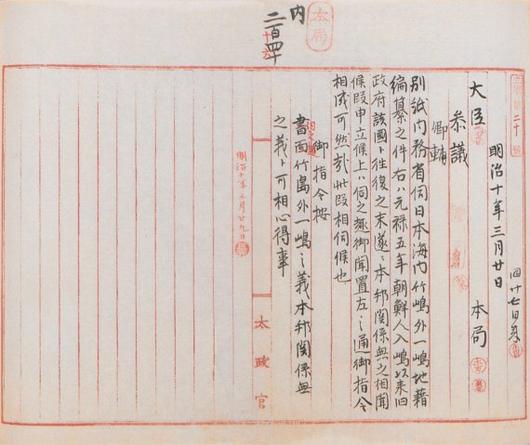 本局
内
明治十年三月廿日
大臣
本局
参議
卿輔
別紙内務省伺日本海内竹嶋外一嶋地籍
編纂之件右ハ元禄五年朝鮮人入嶋以来旧
政府該国ト往復之末遂ニ本邦関係無之相聞
候段申立候上ハ伺之趣御聞置左之通御指令
相成可然哉此段相伺候也
御指令按
書面竹島外一嶋之義本邦関係無
之義ト可相心得事
明治十年三月廿九日
太政官